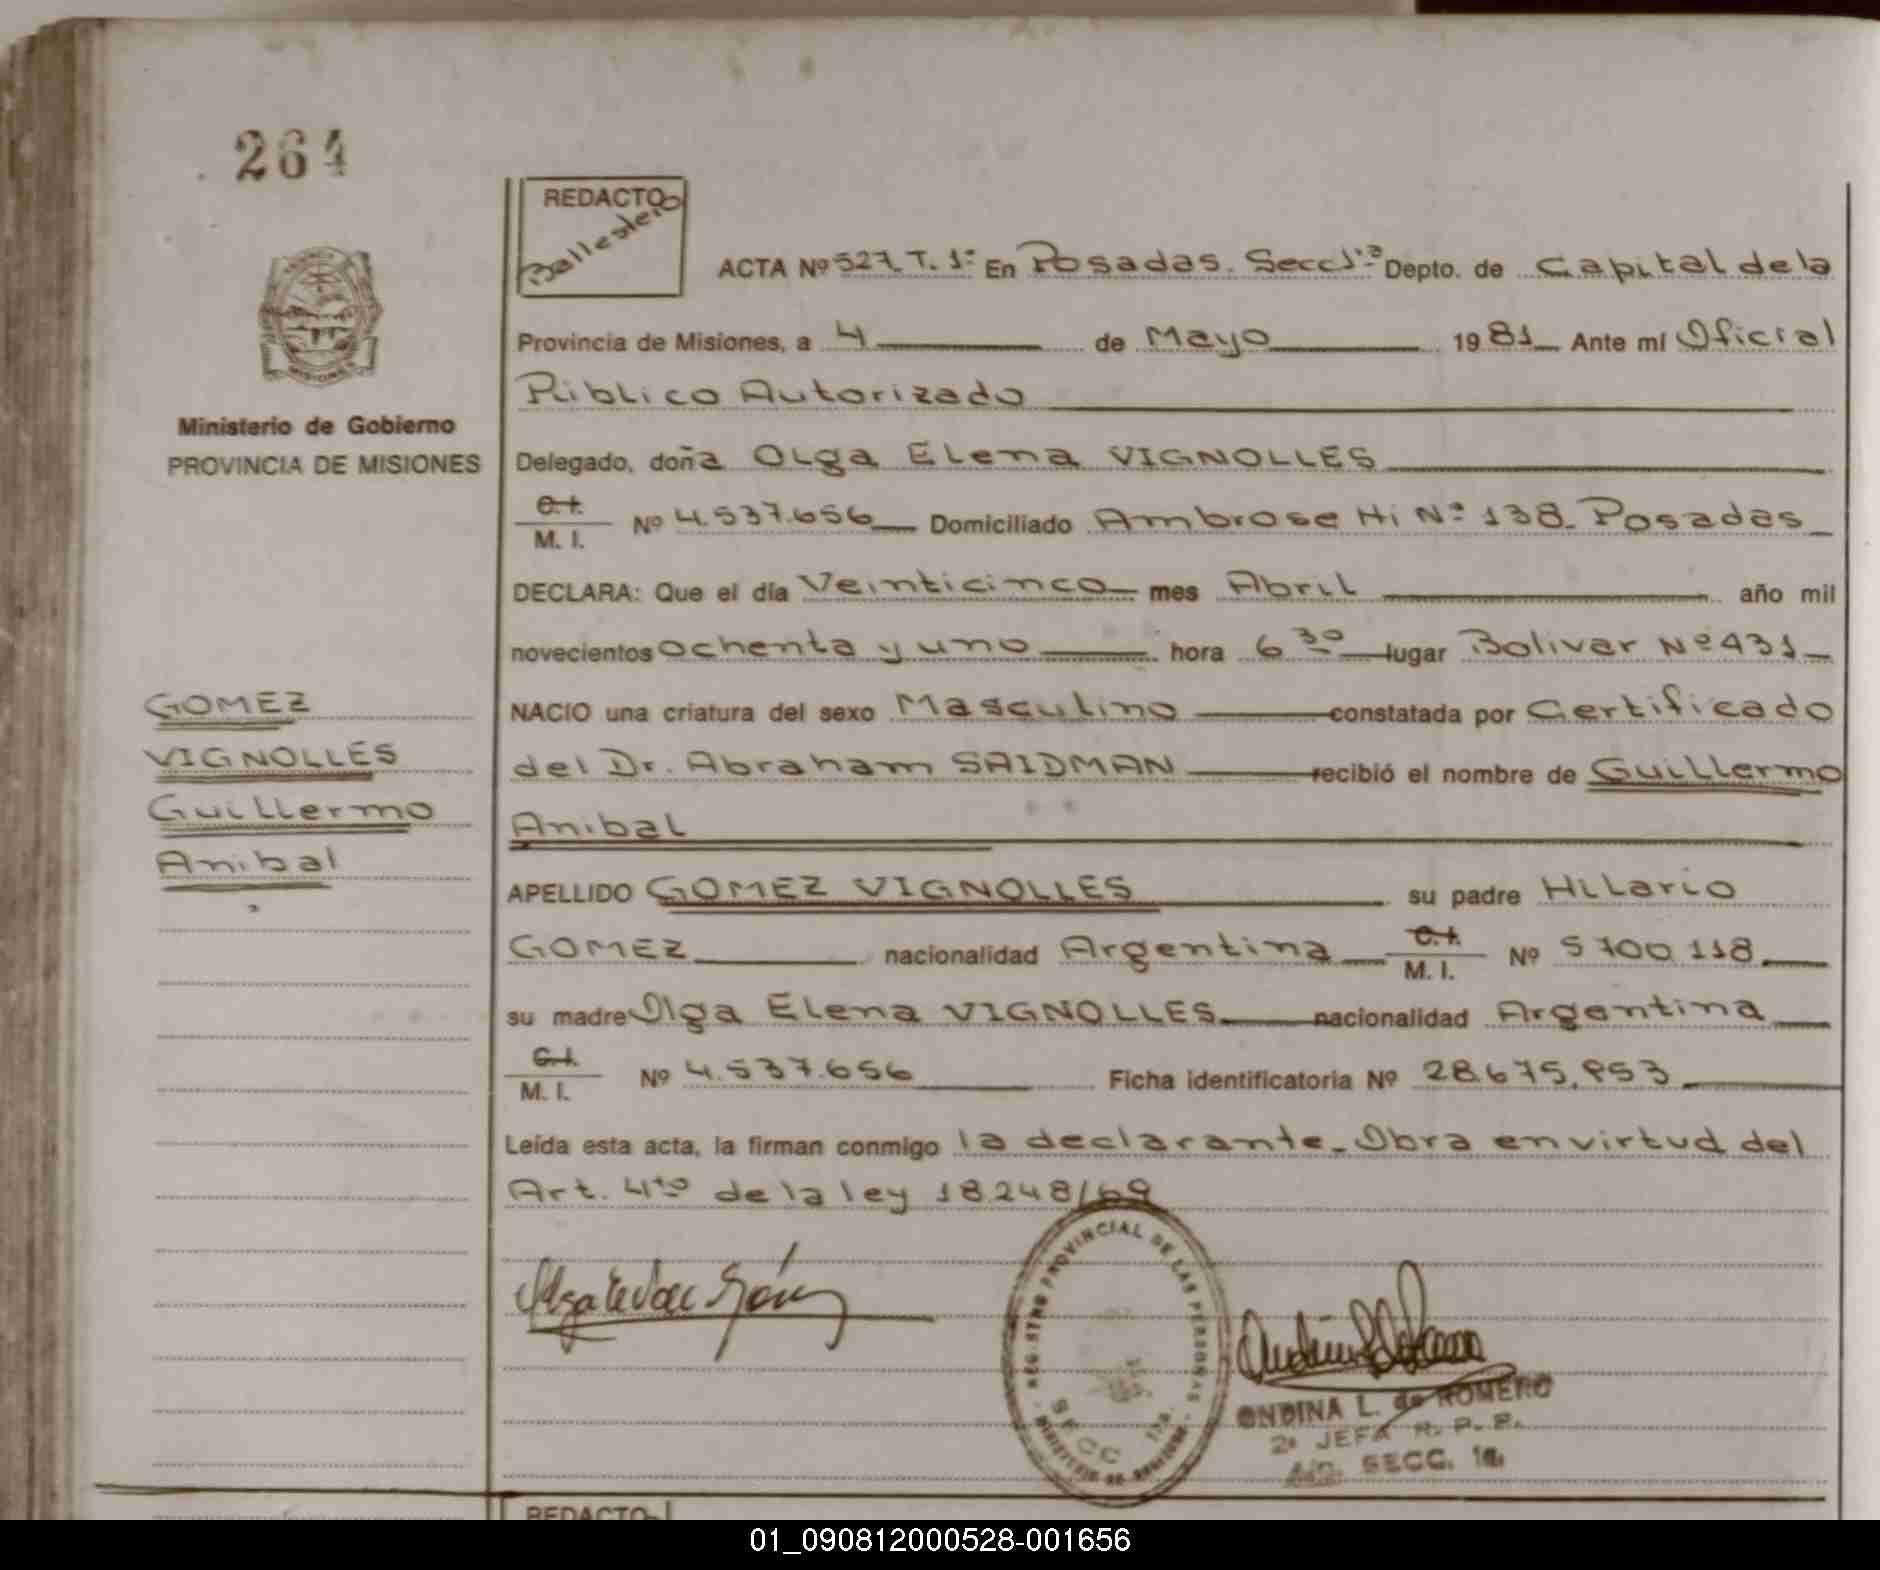 264
REDACTO
Ballestero
ACTA Nº 527. T. 1º En Posadas. Secc 1ª Depto. de Capital de la
Provincia de Misiones, a 4 de Mayo 1981 Ante mí Oficial
Público Autorizado
Ministerio de Gobierno
PROVINCIA DE MISIONES
Delegado, doña Olga Elena VIGNOLLES
C.I.
M. I. Nº 4.537.656 Domiciliado Ambrosetti Nº 138. Posadas
DECLARA: Que el día Veinticinco mes Abril año mil
novecientos ochenta y uno hora 6 30 lugar Bolivar Nº 431
NACIO una criatura del sexo Masculino constatada por Certificado
del Dr. Abraham SAIDMAN recibió el nombre de Guillermo
Anibal
GOMEZ
VIGNOLLES
Guillermo
Anibal
APELLIDO GOMEZ VIGNOLLES su padre Hilario
GOMEZ nacionalidad Argentina C.I. M. I. Nº 5700.118
su madre Olga Elena VIGNOLLES nacionalidad Argentina
C.I.
M. I. Nº 4.537.656 Ficha identificatoria Nº 28.675.853
Leída esta acta, la firman conmigo la declarante. Obra en virtud del
Art. 4to de la ley 18.248/69
REGISTRO PROVINCIAL DE LAS PERSONAS
SECC 1ra.
ONDINA L. de ROMERO
2ª JEFA R. P. P.
SECC. 1a.
REDACTO
01_090812000528-001656